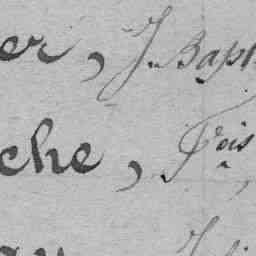 er, J. Bap
che, F.ois